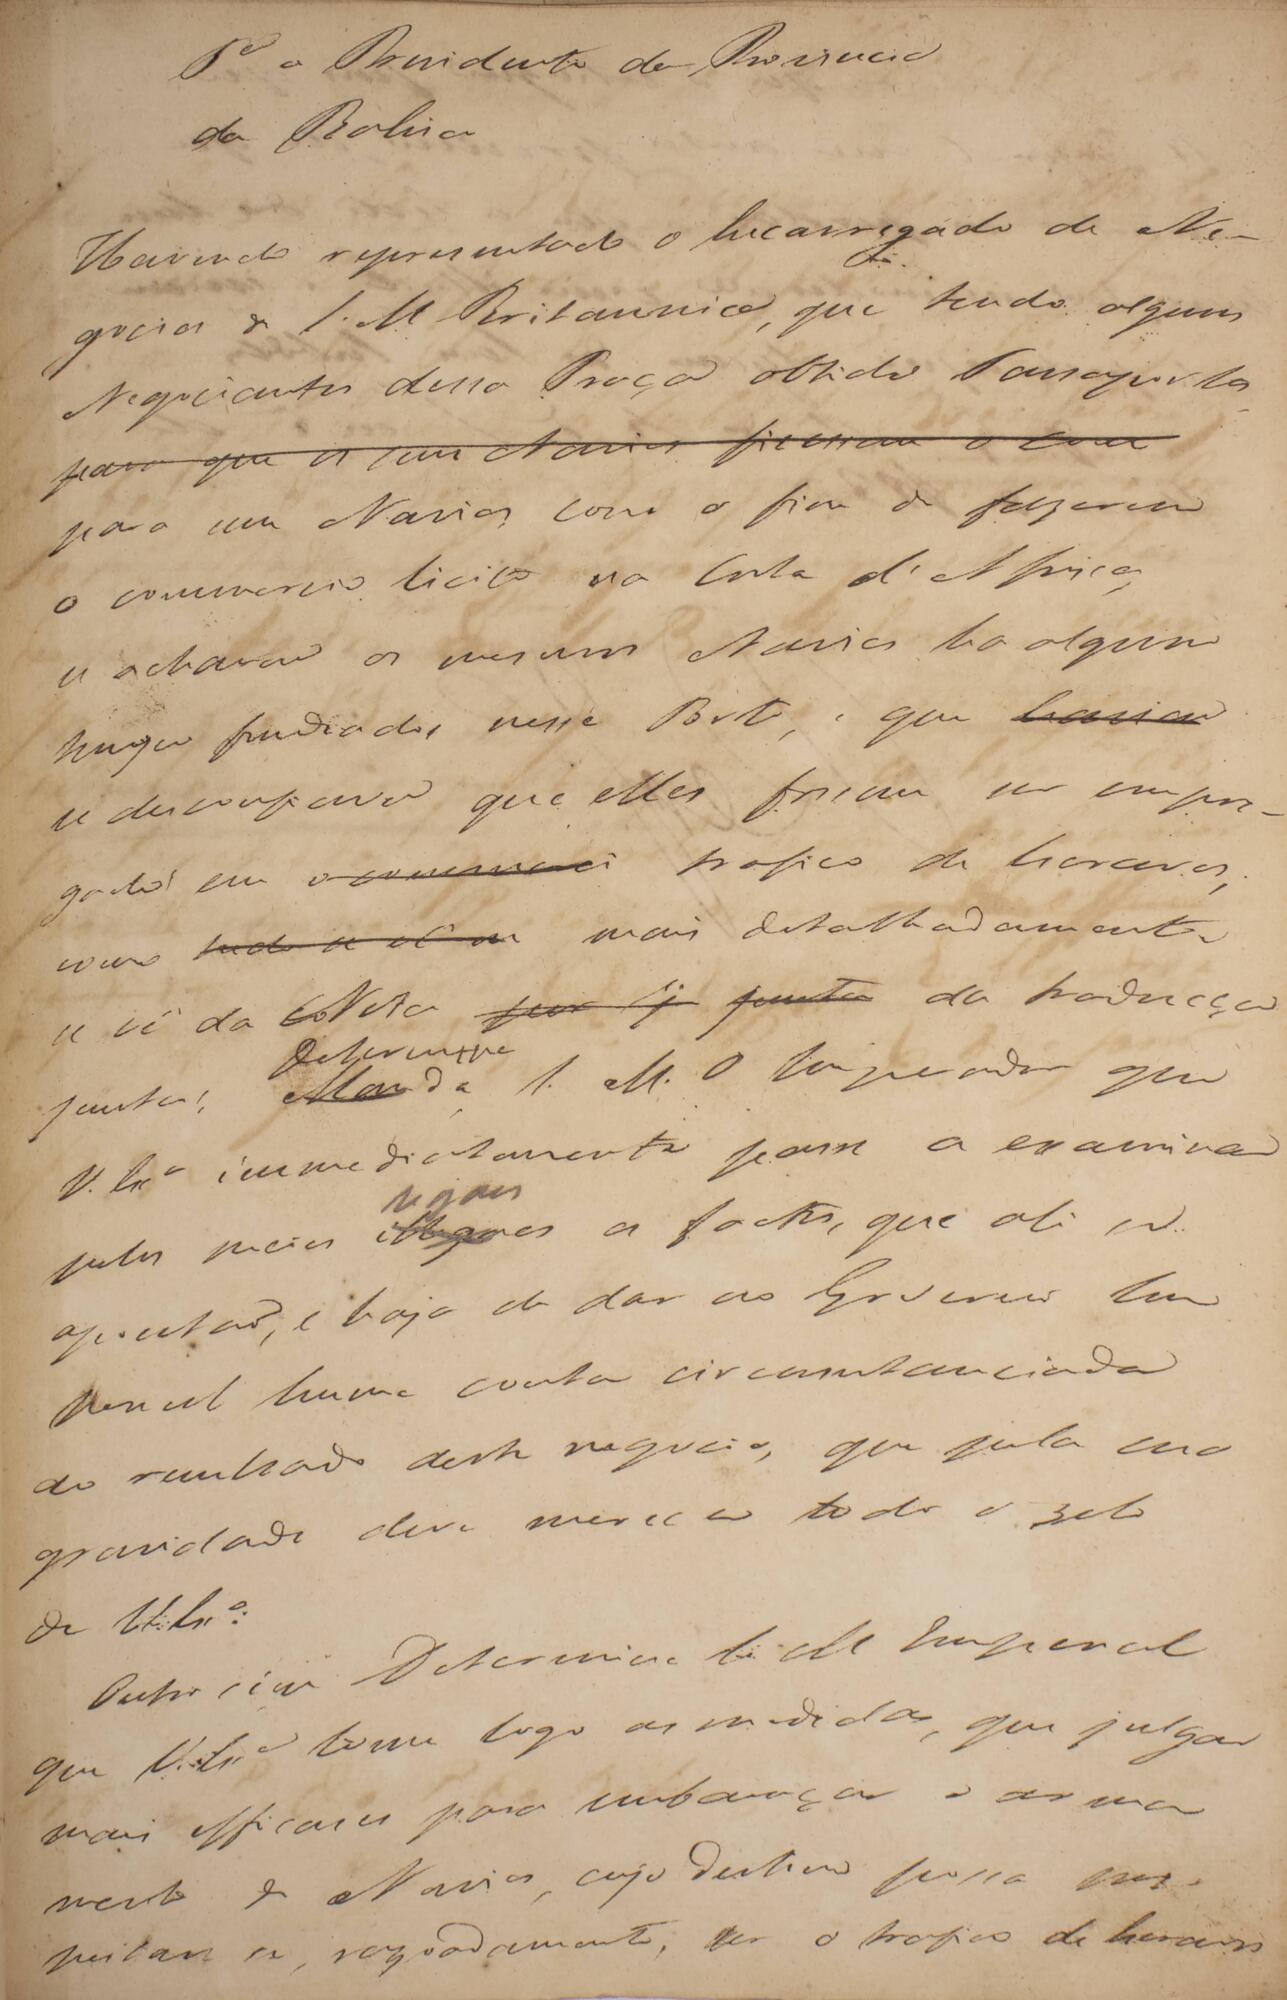 Pª o Presidente da Provincia
da Bahia
Havendo representado o Encarregado de Ne-
gocios de S. M. Britannica, que tendo alguns
Negociantes dessa Praça obtido Passaportes
para que os seus Navios fizessem o com
para seus Navios com o fim de fazerem
o commercio licito na Costa d'Africa,
se achavão os mesmos Navios ha algum
tempo fundiados nesse Porto, e que havião
se desconfiava que elles fossem ser empre-
gados em o commerci trafico de Escravos,
como tudo se vê mais detalhadamente
se vê da Nota por Cª junta da traducção
junta; Determina Manda S. M. O Imperador que
V. Exª immediatamente passe a examinar
pelos meios legaes os factos, que ali se
apontão, e haja de dar ao Governo Im
perial huma conta circumstanciada
do resultado deste negocio, que pela sua
gravidade deve merecer todo o zelo
de V. Exª.
Outro sim Determina S. M. Imperial
que V. Exª tome logo as medidas, que julgar
mais efficazes para embaraçar o arma
mento de Navios, cujo destino possa sus-
peitar se, razoadamente, ser o trafico de Escravos